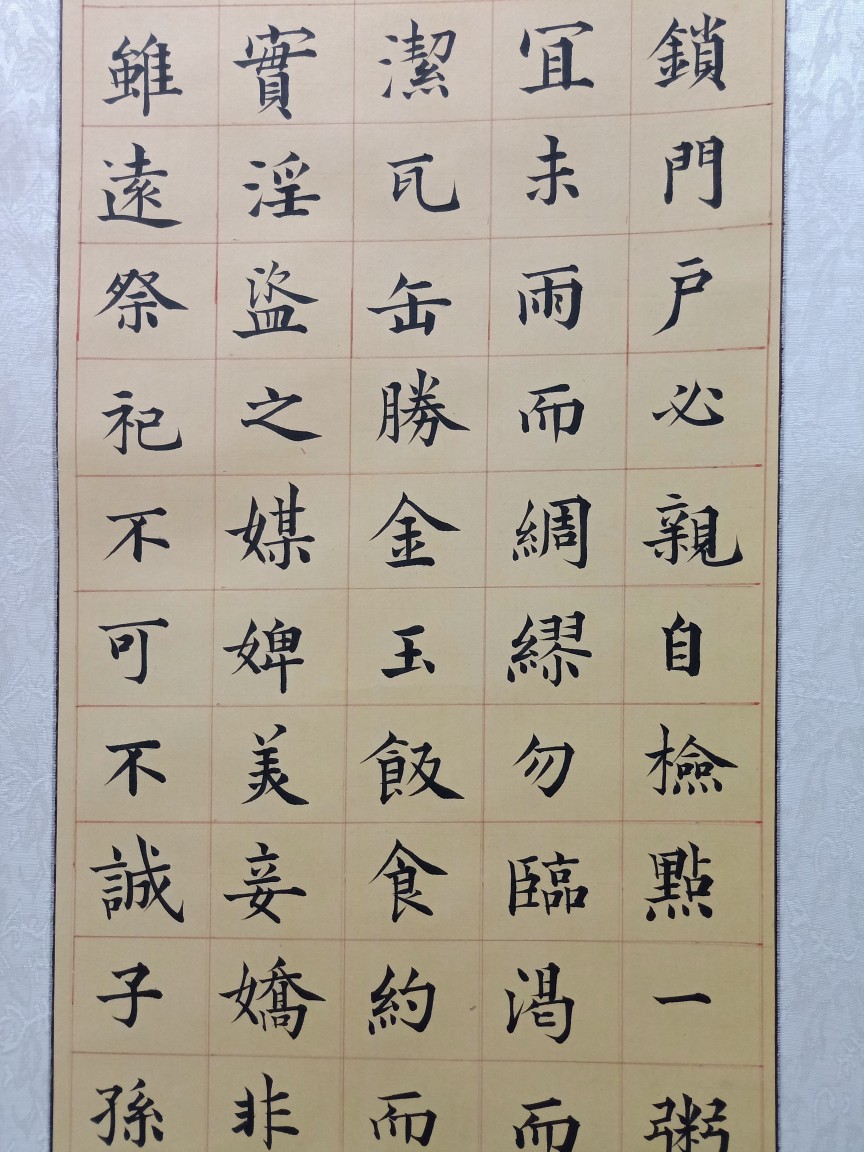 鎖門戶必親自檢點一粥
宜未雨而綢繆勿臨渴而
潔瓦缶勝金玉飯食約而
實淫盜之媒婢美妾嬌非
雖遠祭祀不可不誠子孫